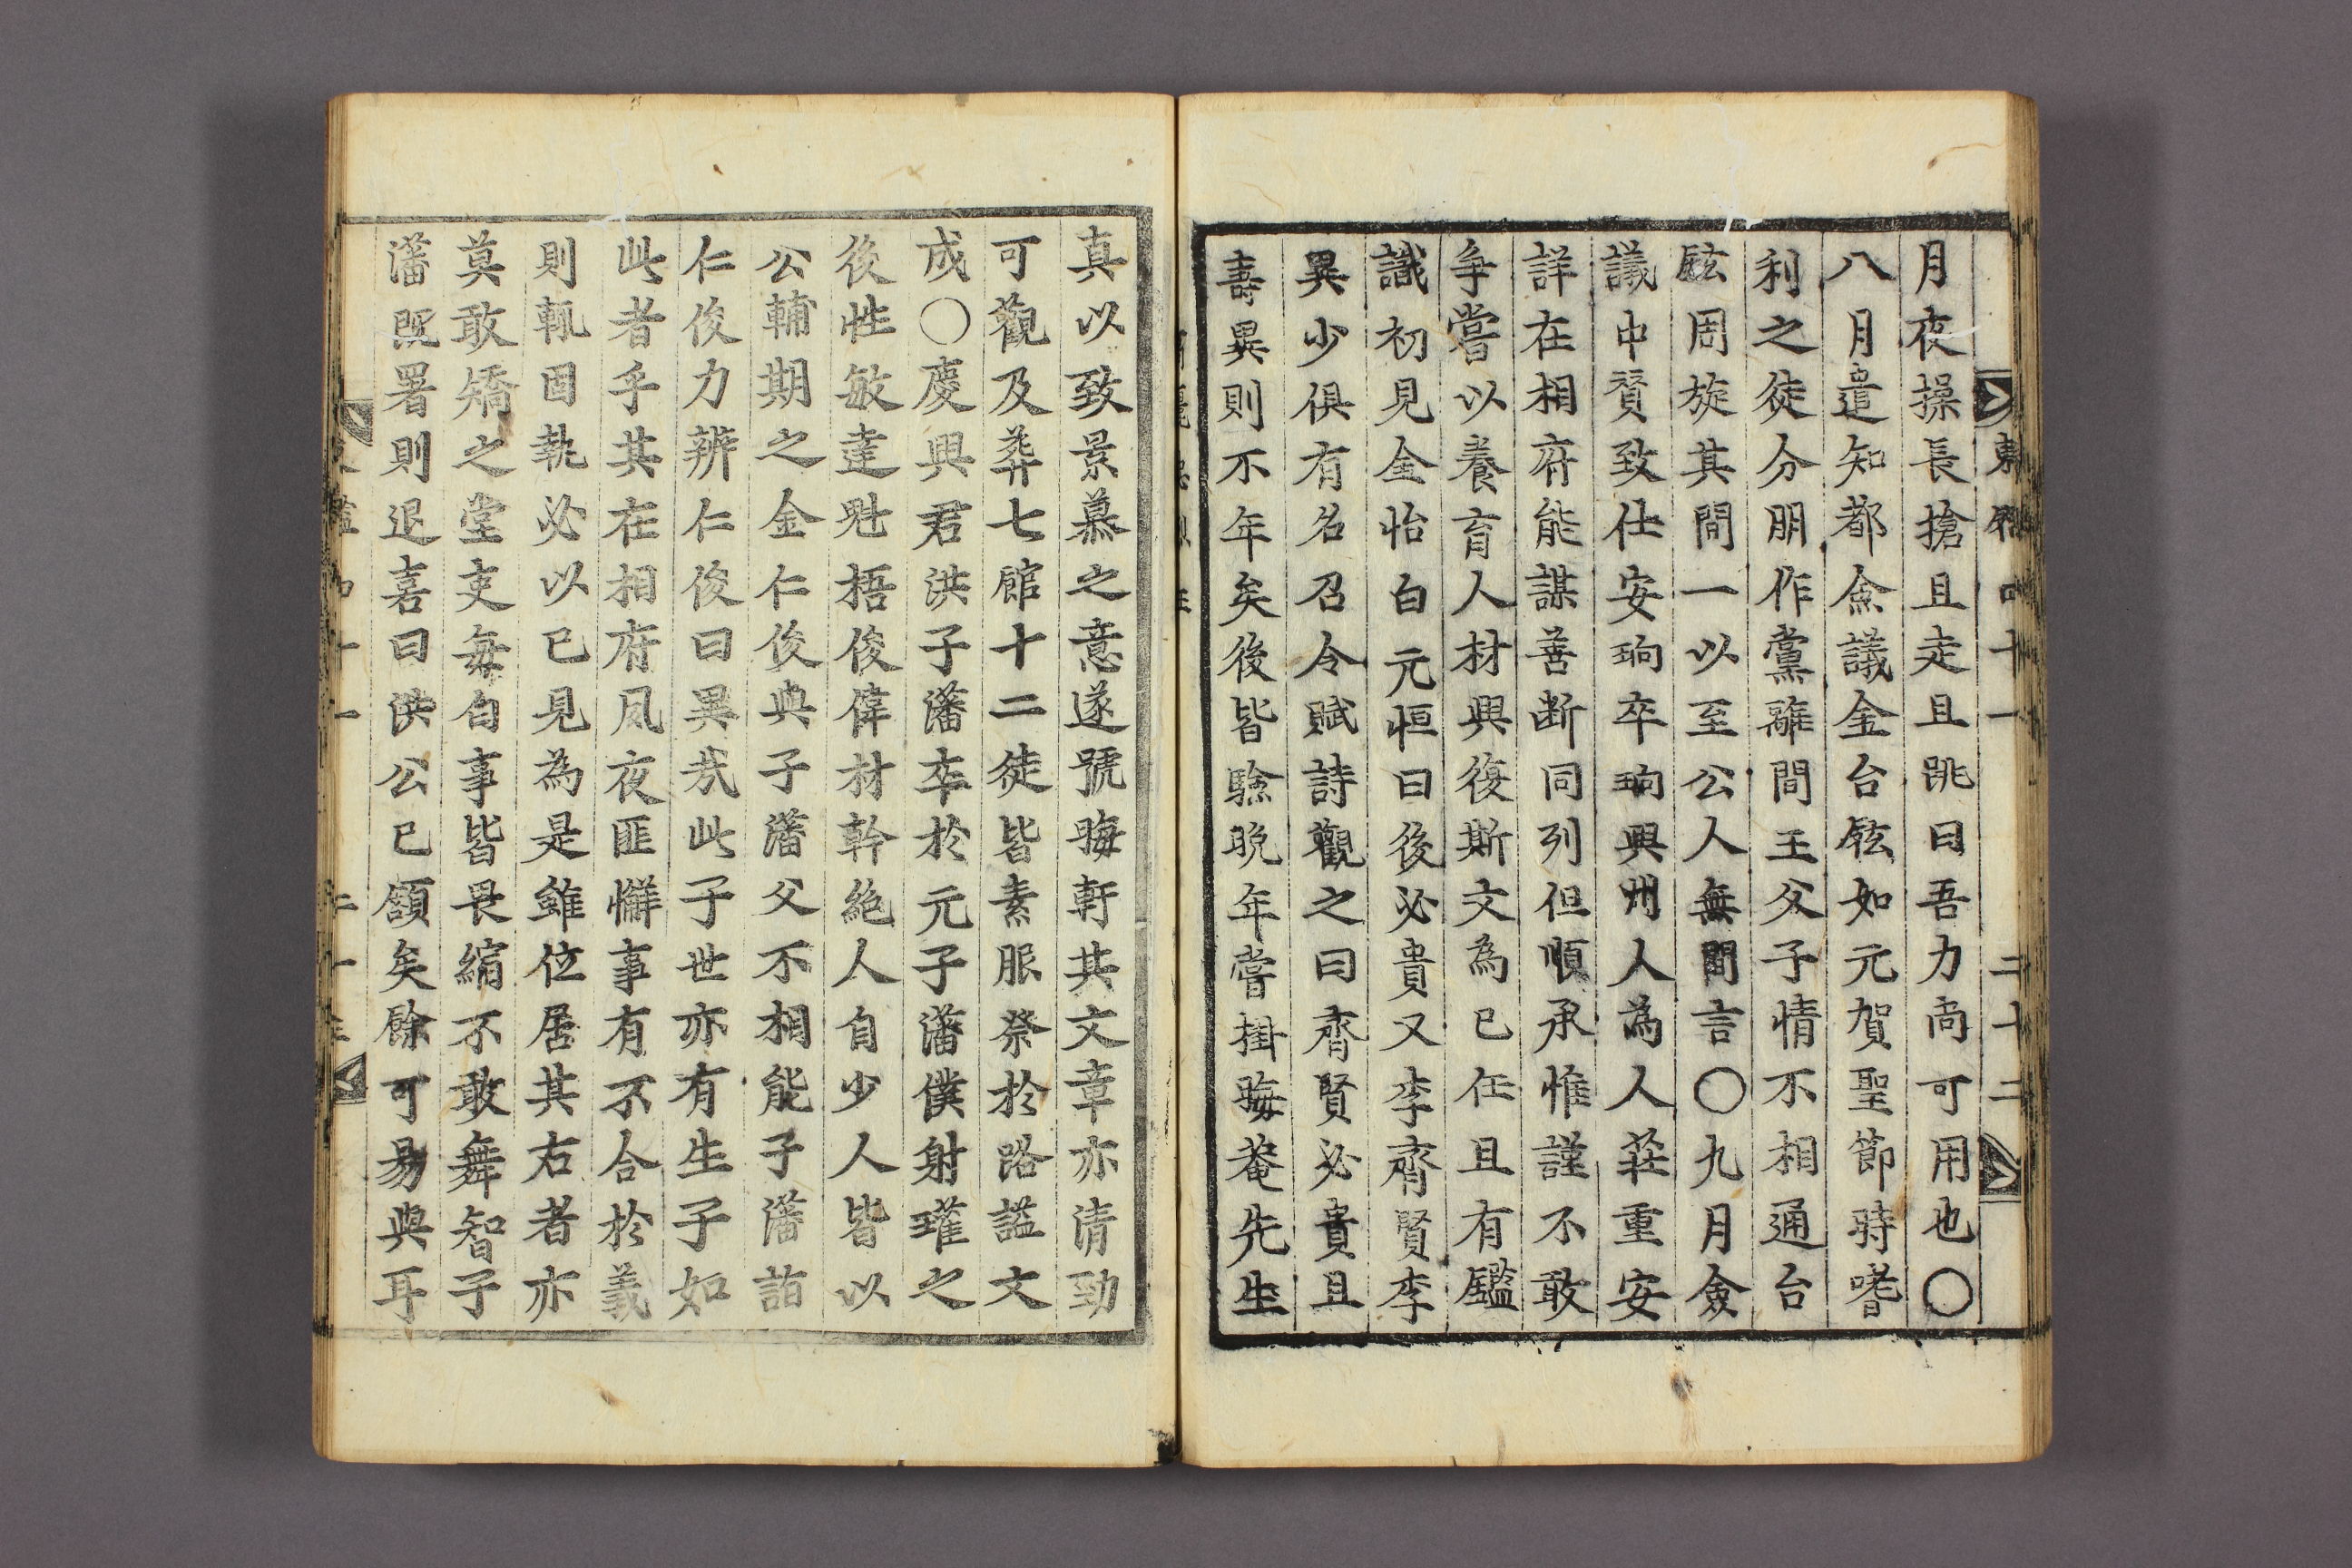 月夜操長搶且走且跳曰吾力尚可用也〇
八月遣知都僉議金台鉉如元賀聖節時嗜
利之徒分朋作黨離間王父子情不相通台
鉉周旋其間一以至公人無間言〇九月僉
議中贊致仕安珦卒珦興州人為人莊重安
詳在相府能謀善断同列但順承惟謹不敢
争嘗以養育人材興復斯文為已任且有鑑
識初見金怡白元恒曰後必貴又李齊賢李
異少俱有名召令賦詩觀之曰齊賢必貴且
壽異則不年矣後皆驗晚年嘗掛晦菴先生
真以致景慕之意遂號晦軒其文章亦清勁
可觀及葬七館十二徒皆素服祭於路謚文
成〇慶興君洪子藩卒於元子藩僕射瓘之
後性敏達魁梧俊偉材幹絶人自少人皆以
公輔期之金仁俊與子藩父不相能子藩詣
仁俊力辨仁俊曰異㢤此子世亦有生子如
此者乎其在相府夙夜匪懈事有不合於義
則輒固執必以已見為是雖位居其右者亦
莫敢矯之堂吏每白事皆畏縮不敢舞智子
藩既署則退喜曰洪公已頷矣餘可易與耳
東鑑四十一
二十二